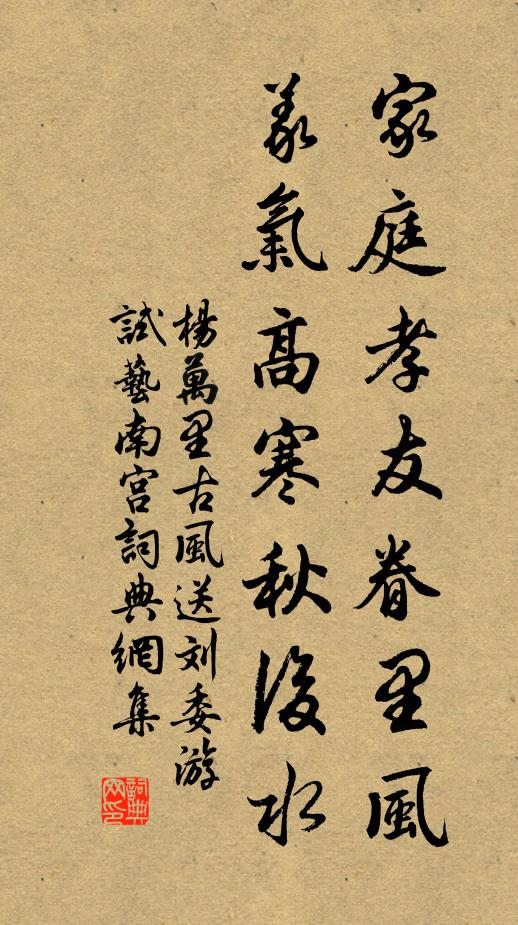 家庭孝友眷里風
義氣高寒秋後水
楊萬里古風送刘委游
試藝南宮詞典網集
詞典網印